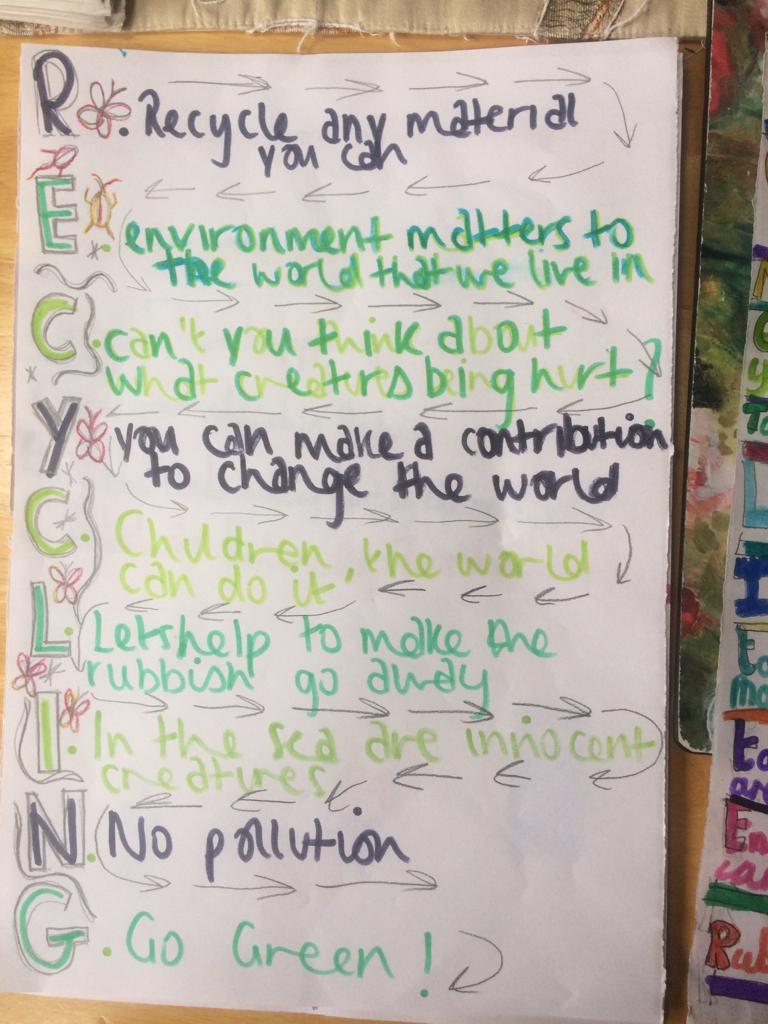 R . Recycle any material
you can
E . environment matters to
the world that we live in
C . can't you think about
what creatures being hurt?
Y you can make a contribution
to change the world
C . Children, the world
can do it,
L . Lets help to make the
rubbish go away
I . In the sea are innocent
creatures
N . No pollution
G . Go Green!